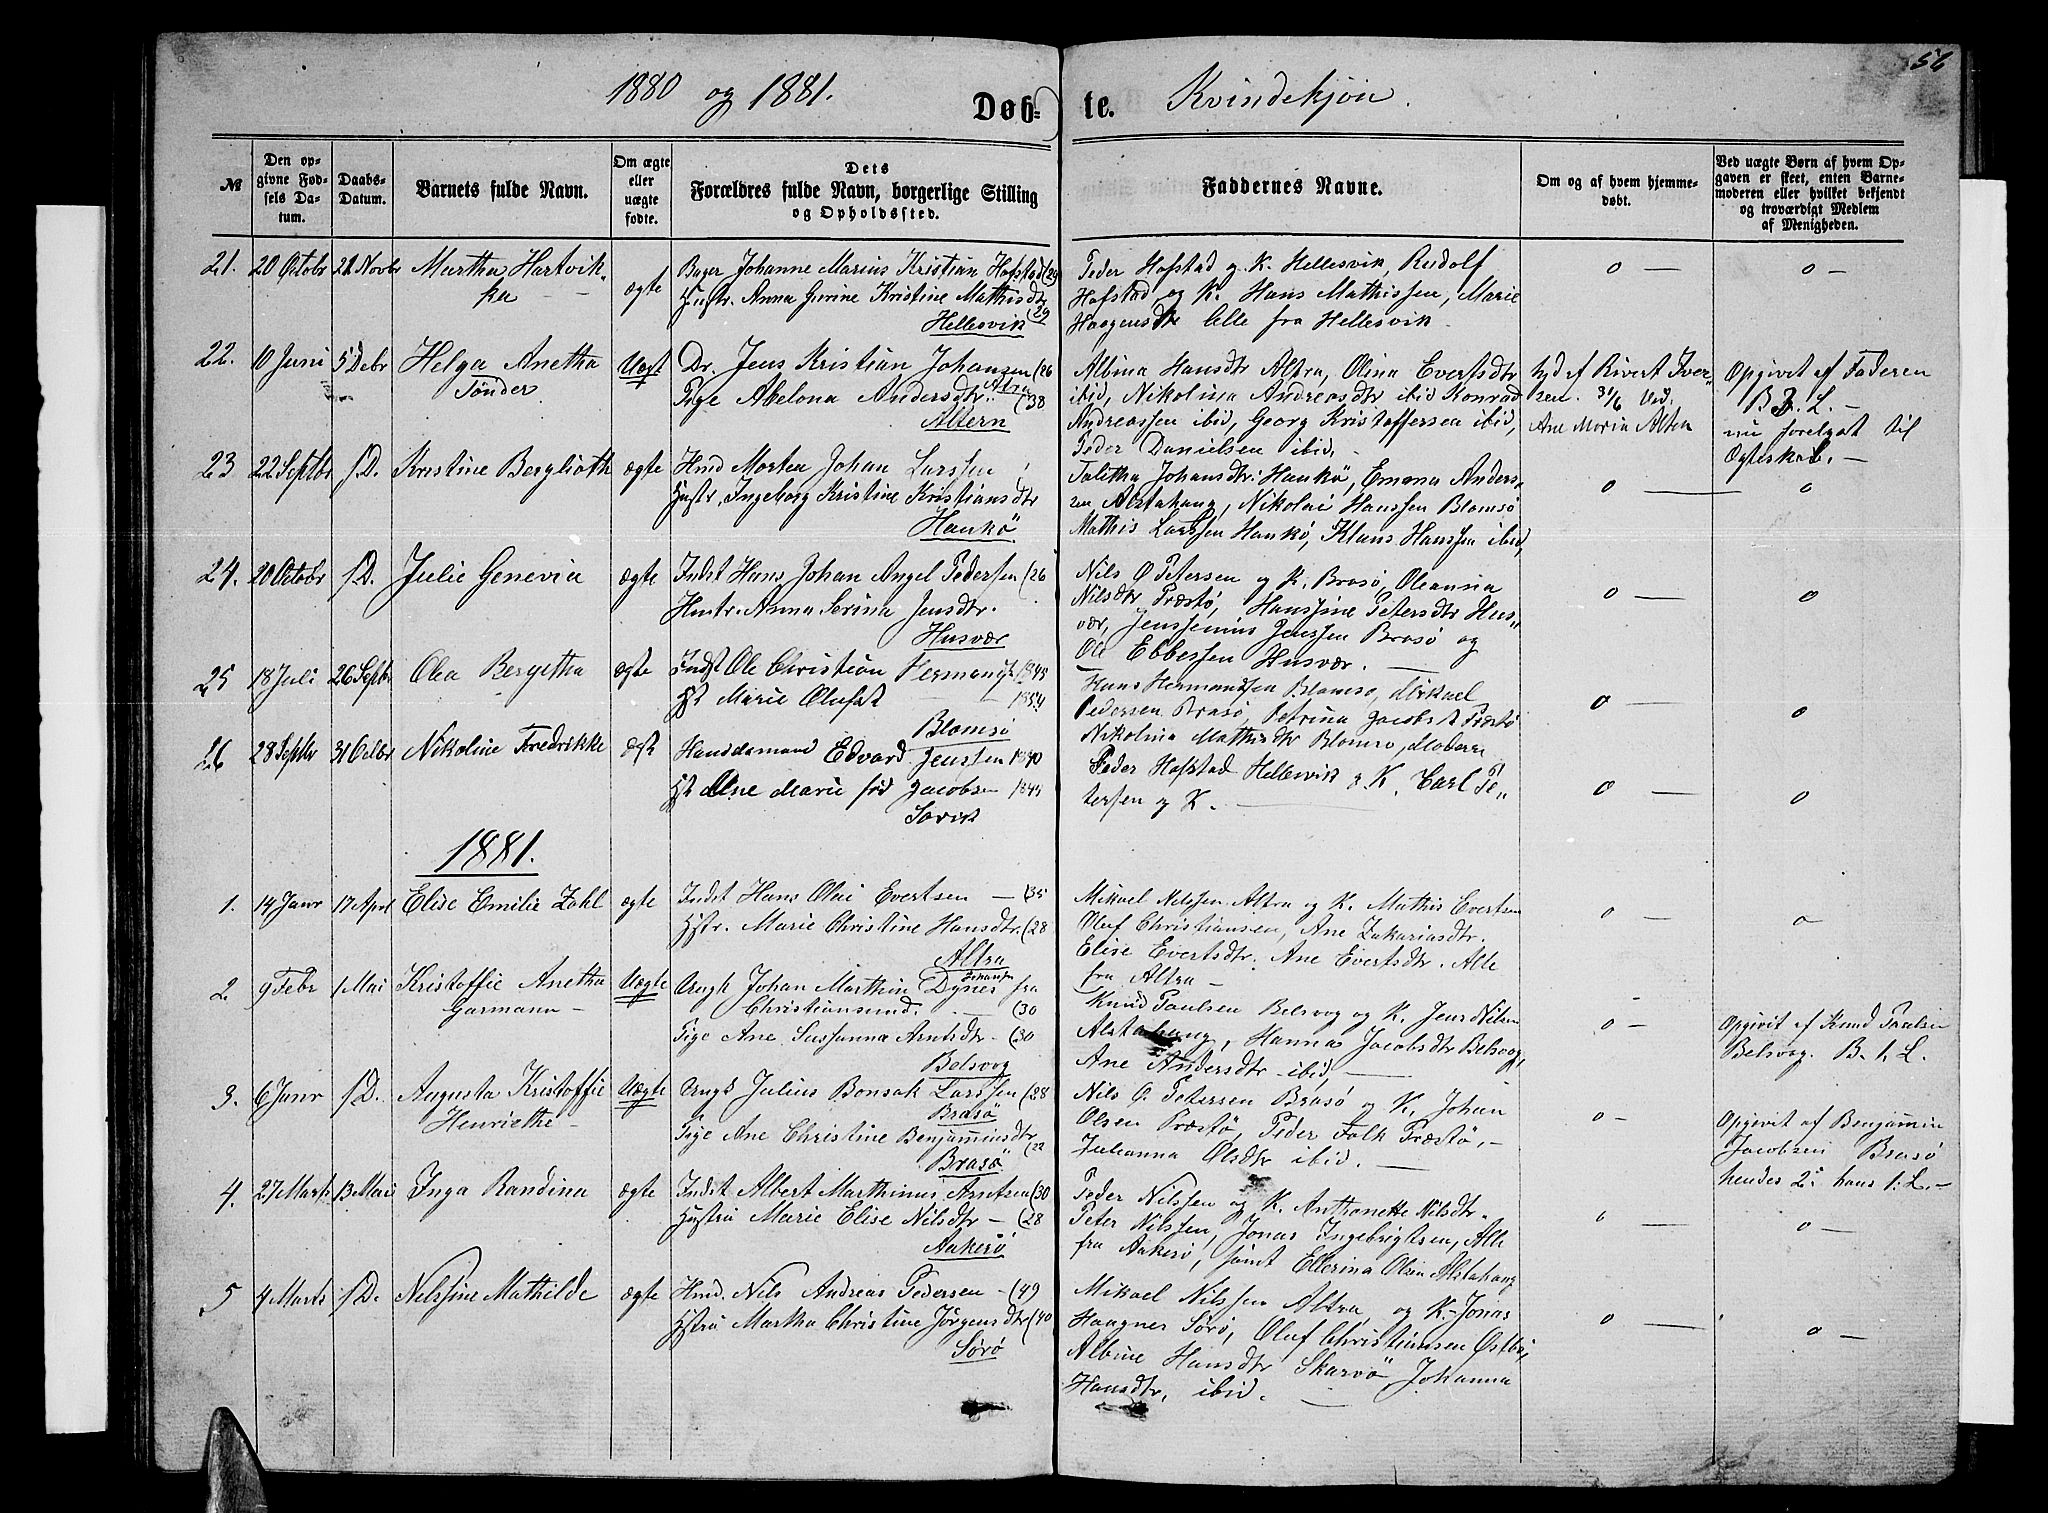 56
1880 og 1881.
Døb-
te.
Kvindekjøn.
№
Den op-
givne Fød-
sels Da-
tum.
Daabs-
Datum.
Barnets fulde Navn.
Om ægte
eller
uægte
fødte.
Dets
Forældres fulde Navn, borgerlige Stilling
og Opholdssted.
Faddernes Navne.
Om og af hvem hjemme-
døbt.
Ved uægte Børn af hvem Op-
gaven er skeet, enten Barne-
moderen eller hvilket bekjendt
og troværdigt Medlem
af Menigheden.
21. 20 Octobr 21 Novbr Martha Hartvik-
ka
ægte
Bager Johanne Marius Kristian Hofstad (29
Hustr. Anna Gurine Kristine Mathisdtr
(29
Hellesvik
Peder Hofstad og K. Hellesvik, Rudolf
Hofstad og K. Hans Mathissen, Marie
Haagensdtr Alle fra Hellesvik
o — o —
22. 10 Juni 5 Debr Helga Anetha
Tønder
Uægt
Dr. Jens Kristian Johansen (26
Altra
Pige Abelona Andersdtr. (38
Altern
Albina Hansdtr Altra, Olina Evertsdtr
ibid, Nikolina Andreasdtr ibid Konrad
Andreassen ibid, Georg Kristoffersen ibid,
Peder Danielsen ibid. —
hjd af Sivert Iver-
sen. Ved.
Ane Maria Alten
Opgivet af Faderen
B. 2. L. —
nu forelovet til
Ægteskab. —
23 22 Septbr s.D. Kristine Berglioth ægte
Hmd Morten Johan Larssen
Hustr. Ingeborg Kristine Kristiansdtr
Haukö
Talitha Johansdtr. Haukö, Emma Anders-
sen Alstahaug, Nikolai Hanssen Blomsø
Mathis Larssen Haukö, Klaus Hanssen ibid,
o — o
24. 20 Octobr s.D. Julie Genevia ægte
Indst Hans Johan Angel Pedersen (26
Hustr. Anna Serina Jensdtr.
Husvær
Nils O Petersen og K. Brasø, Oleanna
Nilsdtr Præstø, Hanssine Petersdtr Hus-
vær, Jenssenius Jenssen Brasø og
Ole Ebbessen Husvær. —
o — o
25 18 Juli 26 Septbr Olea Bergetha ægte
Indst Ole Christian Hermands 1845
Hst Marie Olufsd 1854
Blomsö
Hans Hermandsen Blomsø, Mikael
Pedersen Brasø, Petrina Jacobsd Præstø
Nikolina Mathisdtr Blomsø, Moderen
o — o
26 28 Septbr 31 Octbr Nikoline Fredrikke ægt
Handelsmand Edvard Jenssen 1840
Hst Ane Marie fød Jacobsen 1845
Sørvik
Peder Hofstad Hellesvik og K. Carl Pe-
tersen og K. —
o — o
1881.
1. 14 Janr 17 Aprl Elise Emilie Zahl ægte
Indst Hans Olai Evertsen — (35
Hstr. Marie Christine Hansdtr. (28
Altra
Mikael Nilssen Altra og K. Mathis Evertsen
Oluf Christiansen, Ane Zakariasdtr.
Elise Evertsdtr. Ane Evertsdtr. Alle
fra Altra —
o — o
2. 9 Febr 1 Mai Kristoffie Anetha
Garmann —
Uægte
Ungk Johan Marthin Dynes Johansen fra
Christiansund. — (30
Pige Ane Sussanna Arntsdtr — (30
Belsvog
Knud Paulsen Belsvog og K. Jens Nilsen
Alstahaug, Hanna Jacobsdtr Belsvog,
Ane Andersdtr ibid, —
o —
Opgivit af Knud Paulsen
Belsvog. B. 1. L.
3. 6 Janr s.D. Augusta Kristoffie
Henriethe —
Uægte
Ungk Julius Bonsak Larssen (28
Brasö
Pige Ane Christine Benjaminsdtr
(22
Brasö
Nils O. Petersen Brasø og K. Johan
Olsen Præstø, Peder Falk Præstø, —
Julianna Olsdtr ibid. —
o —
Opgivit af Benjamin
Jacobsen Brasø
hendes 2. hans 1. L. —
4. 27 Marts 13 Mai Inga Randina ægte
Indst Albert Marthinus Arntsen (30
Hustru Marie Elise Nilsdtr — (28
Aakerö
Peder Nilssen og K. Anthonette Nilsdtr.
Peter Nilssen, Jonas Ingebrigtsen, Alle
fra Aakerö, samt Ellerina Olsen Alstahaug
o — o —
5 4 Marts s.D. Nilssine Mathilde ægte
Hmd. Nils Andreas Pedersen — (49
Hstru Martha Christine Jörgensdtr (40
Sørø
Mikael Nilssen Altra, og K. Jonas
Haagner Sørø, Oluf Christiansen Østbø,
Albine Hansdtr Skarvö, Johanna
Hansdtr, ibid. —
o — o —